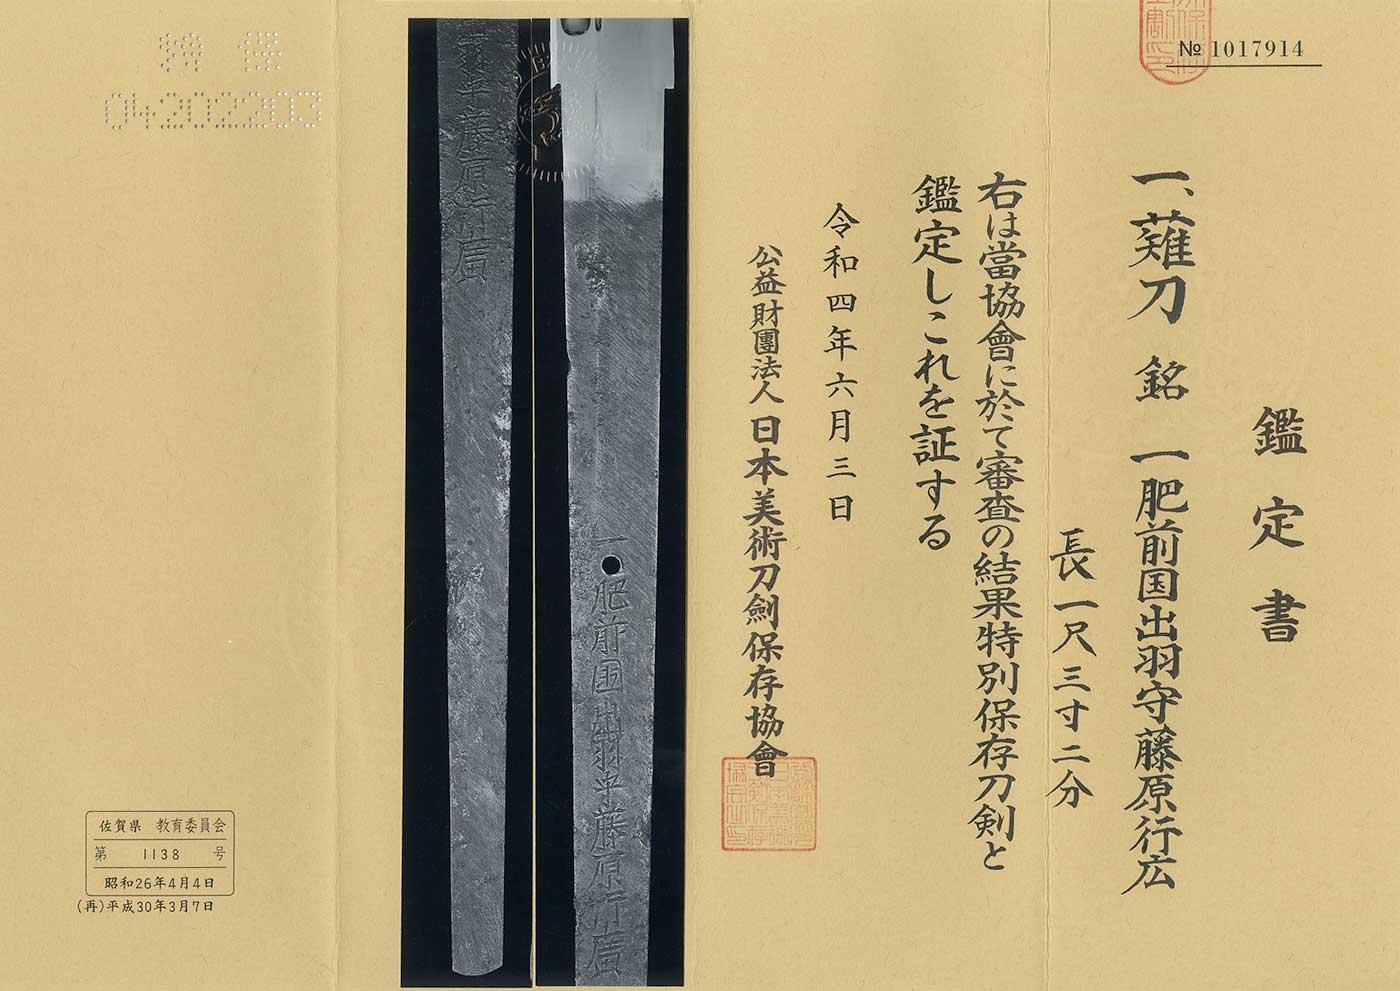 № 1017914
鑑定書
一、薙刀 銘 一肥前国出羽守藤原行広
長一尺三寸二分
右は當協會に於て審査の結果特別保存刀剣と
鑑定しこれを証する
令和四年六月三日
公益財團法人 日本美術刀劍保存協會
一肥前国出羽守藤原行廣
羽守藤原行廣
04202203
佐賀県 教育委員会
第 1138 号
昭和26年4月4日
(再)平成30年3月7日